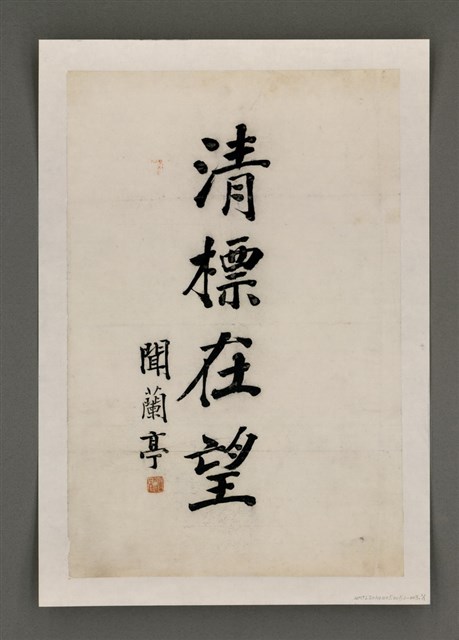 清標在望
聞蘭亭